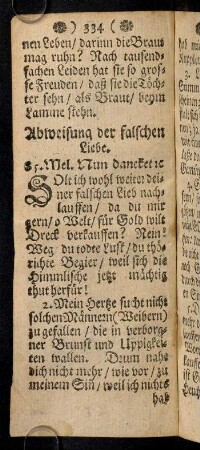 334
nen Leben / darinn die Braut
mag ruhn? Nach tausend-
fachen Leiden hat sie so gros-
se Freuden / daß sie die Töch-
ter sehn / als Braut / beym
Lamme stehn.
Abweisung der falschen
Liebe.
85. Mel. Nun dancket ꝛc
SOlt ich wohl weiter dei-
ner falschen Lieb nach-
lauffen / da du mir
gern / o Welt / für Gold wilt
Dreck verkauffen? Nein!
Weg du todte Lust / du thö-
richte Begier / weil sich die
Himmlische jetzt mächtig
thut herfür!
2. Mein Hertze sucht nicht
solchen Männern (Weibern)
zu gefallen / die in verborg-
ner Brunst und Uppigkei-
ten wallen. Drum nahe
dich nicht mehr / wie vor / zu
meinem Sin / weil ich nichts
daß